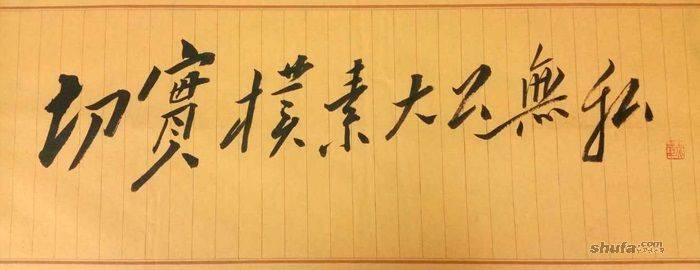 切實樸素大公無私
shufa.com